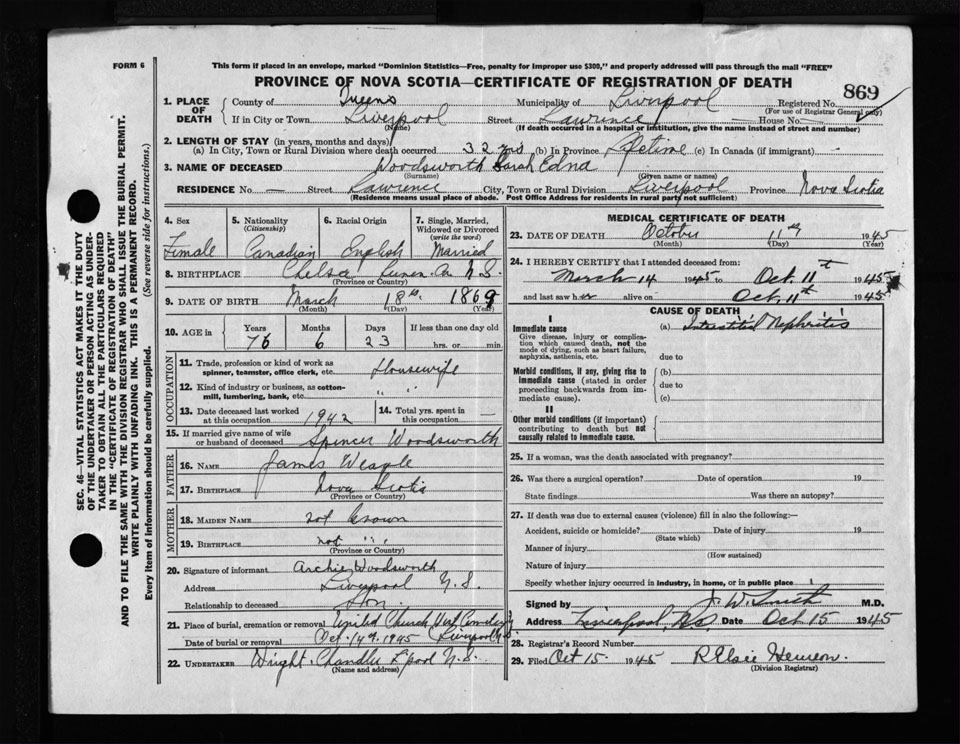 FORM 6
This form if placed in an envelope, marked "Dominion Statistics—Free, penalty for improper use $300," and properly addressed will pass through the mail "FREE"
PROVINCE OF NOVA SCOTIA—CERTIFICATE OF REGISTRATION OF DEATH
869
1. PLACE OF DEATH County of Queens Municipality of Liverpool Registered No.
(For use of Registrar General only)
If in City or Town Liverpool Street Lawrence House No. —
(Name) (If death occurred in a hospital or institution, give the name instead of street and number)
2. LENGTH OF STAY (in years, months and days)
(a) In City, Town or Rural Division where death occurred 32 yrs (b) In Province Lifetime (c) In Canada (if immigrant) -
3. NAME OF DECEASED Woodsworth Sarah Edna
(Surname) (Given name or names)
RESIDENCE No. — Street Lawrence City, Town or Rural Division Liverpool Province Nova Scotia
(Residence means usual place of abode. Post Office Address for residents in rural parts not sufficient)
4. Sex 5. Nationality (Citizenship) 6. Racial Origin 7. Single, Married, Widowed or Divorced (write the word)
Female Canadian English Married
8. BIRTHPLACE Chelsea Lunen. Co. N.S.
(Province or Country)
9. DATE OF BIRTH March 18th 1869
(Month) (Day) (Year)
10. AGE in Years Months Days If less than one day old
76 6 23 hrs. or min.
OCCUPATION
11. Trade, profession or kind of work as spinner, teamster, office clerk, etc. Housewife
12. Kind of industry or business, as cotton-mill, lumbering, bank, etc. " "
13. Date deceased last worked at this occupation 1942 14. Total yrs. spent in this occupation —
15. If married give name of wife or husband of deceased Spencer Woodsworth
FATHER
16. NAME James
17. BIRTHPLACE Nova Scotia
(Province or Country)
MOTHER
18. MAIDEN NAME not known
19. BIRTHPLACE not " "
(Province or Country)
20. Signature of informant Archie Woodsworth
Address Liverpool N.S.
Relationship to deceased Son
21. Place of burial, cremation or removal United Church West Cemetery
Date of burial or removal Oct. 14th 1945 (Liverpool N.S.
22. UNDERTAKER Wright Chandler L'pool N.S.
(Name and address)
MEDICAL CERTIFICATE OF DEATH
23. DATE OF DEATH October 11th 1945
(Month) (Day) (Year)
24. I HEREBY CERTIFY that I attended deceased from:
March 14 1945 to Oct. 11th 1945
and last saw her alive on Oct. 11th 1945
CAUSE OF DEATH
I
Immediate cause (a) Interstitial Nephritis
Give disease, injury or complication which caused death, not the mode of dying, such as heart failure, asphyxia, asthenia, etc.
due to
Morbid conditions, if any, giving rise to immediate cause (stated in order proceeding backwards from immediate cause).
(b)
due to
(c)
II
Other morbid conditions (if important) contributing to death but not causally related to immediate cause.
25. If a woman, was the death associated with pregnancy?
26. Was there a surgical operation? Date of operation 19
State findings Was there an autopsy?
27. If death was due to external causes (violence) fill in also the following:—
Accident, suicide or homicide? Date of injury 19
(State which)
Manner of injury
(How sustained)
Nature of injury
Specify whether injury occurred in industry, in home, or in public place
Signed by J. W. Smith M.D.
Address Liverpool, N.S. Date Oct 15 1945
28. Registrar's Record Number
29. Filed Oct 15 1945 R Elsie
(Division Registrar)
SEC. 46—VITAL STATISTICS ACT MAKES IT THE DUTY
OF THE UNDERTAKER OR PERSON ACTING AS UNDER-
TAKER TO OBTAIN ALL THE PARTICULARS REQUIRED
IN THE "CERTIFICATE OF REGISTRATION OF DEATH"
AND TO FILE THE SAME WITH THE DIVISION REGISTRAR WHO SHALL ISSUE THE BURIAL PERMIT.
WRITE PLAINLY WITH UNFADING INK. THIS IS A PERMANENT RECORD.
Every item of information should be carefully supplied. (See reverse side for instructions.)